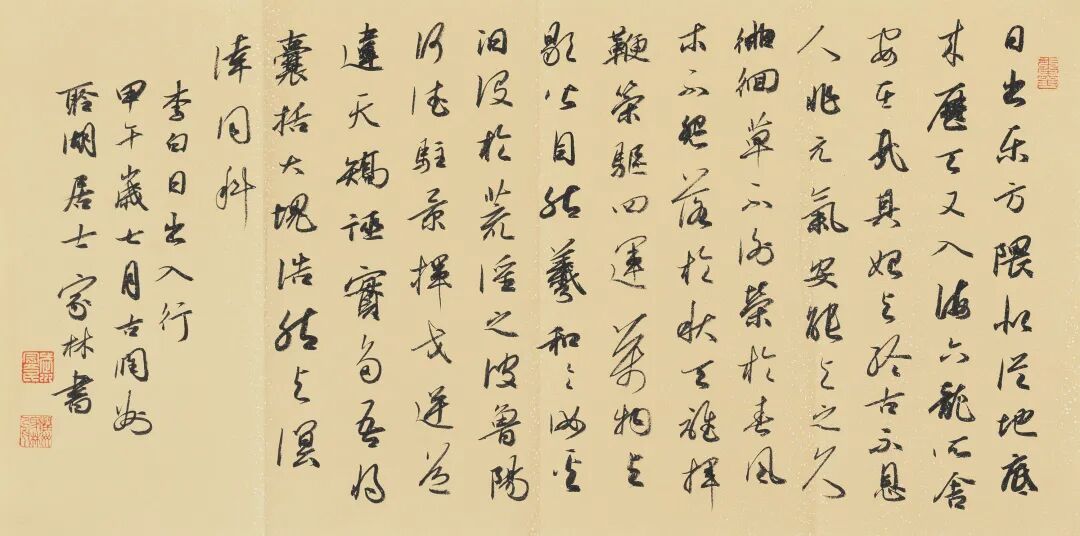 日出东方隈似从地底
来歷天又入海六龍所舍
安在哉其始与終古不息
人非元氣安能与之久
徘徊草不謝榮於春風
木不怨落於秋天誰揮
鞭策驅四運萬物興
歇皆自然羲和々汝奚
汩没於荒淫之波魯陽
何德駐景揮戈逆道
違天矯誣實多吾將
囊括大塊浩然与溟
涬同科
李白日出入行
甲午歲七月古潤州
聆湖居士家林書